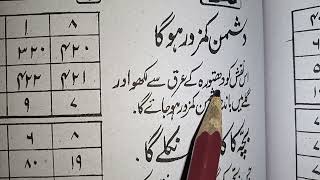 دشمن کمزور ہوگا
اس نقش کو دھتورہ کے عرق سے لکھو اور
گلے میں باندھو دشمن کمزور ہو جائے گا۔
بچہ کا نکلے گا
۱ ۸
۳۲۰ ۴۲۰
۴۲۲ ۴۲۱
۹ ۷
۶ ۸
۸۰ ۱۹